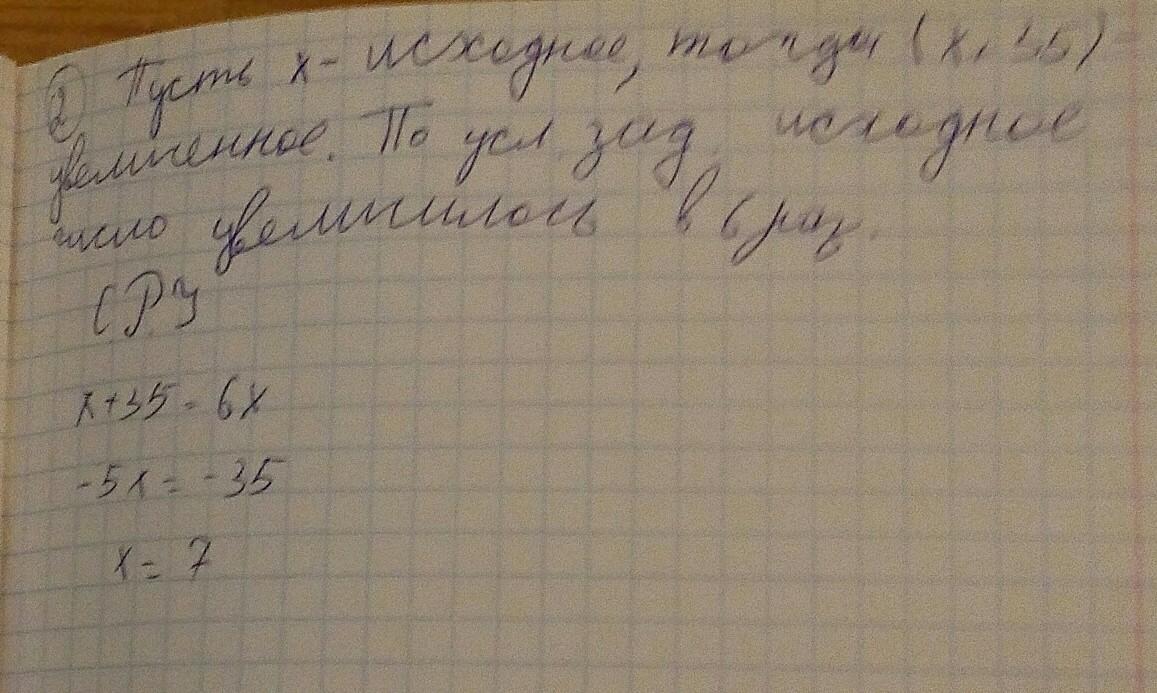 ② Пусть x - исходное, тогда (x+35) -
увеличенное. По усл. зад. исходное
число увеличилось в 6 раз.
СРУ
x+35=6x
-5x=-35
x=7